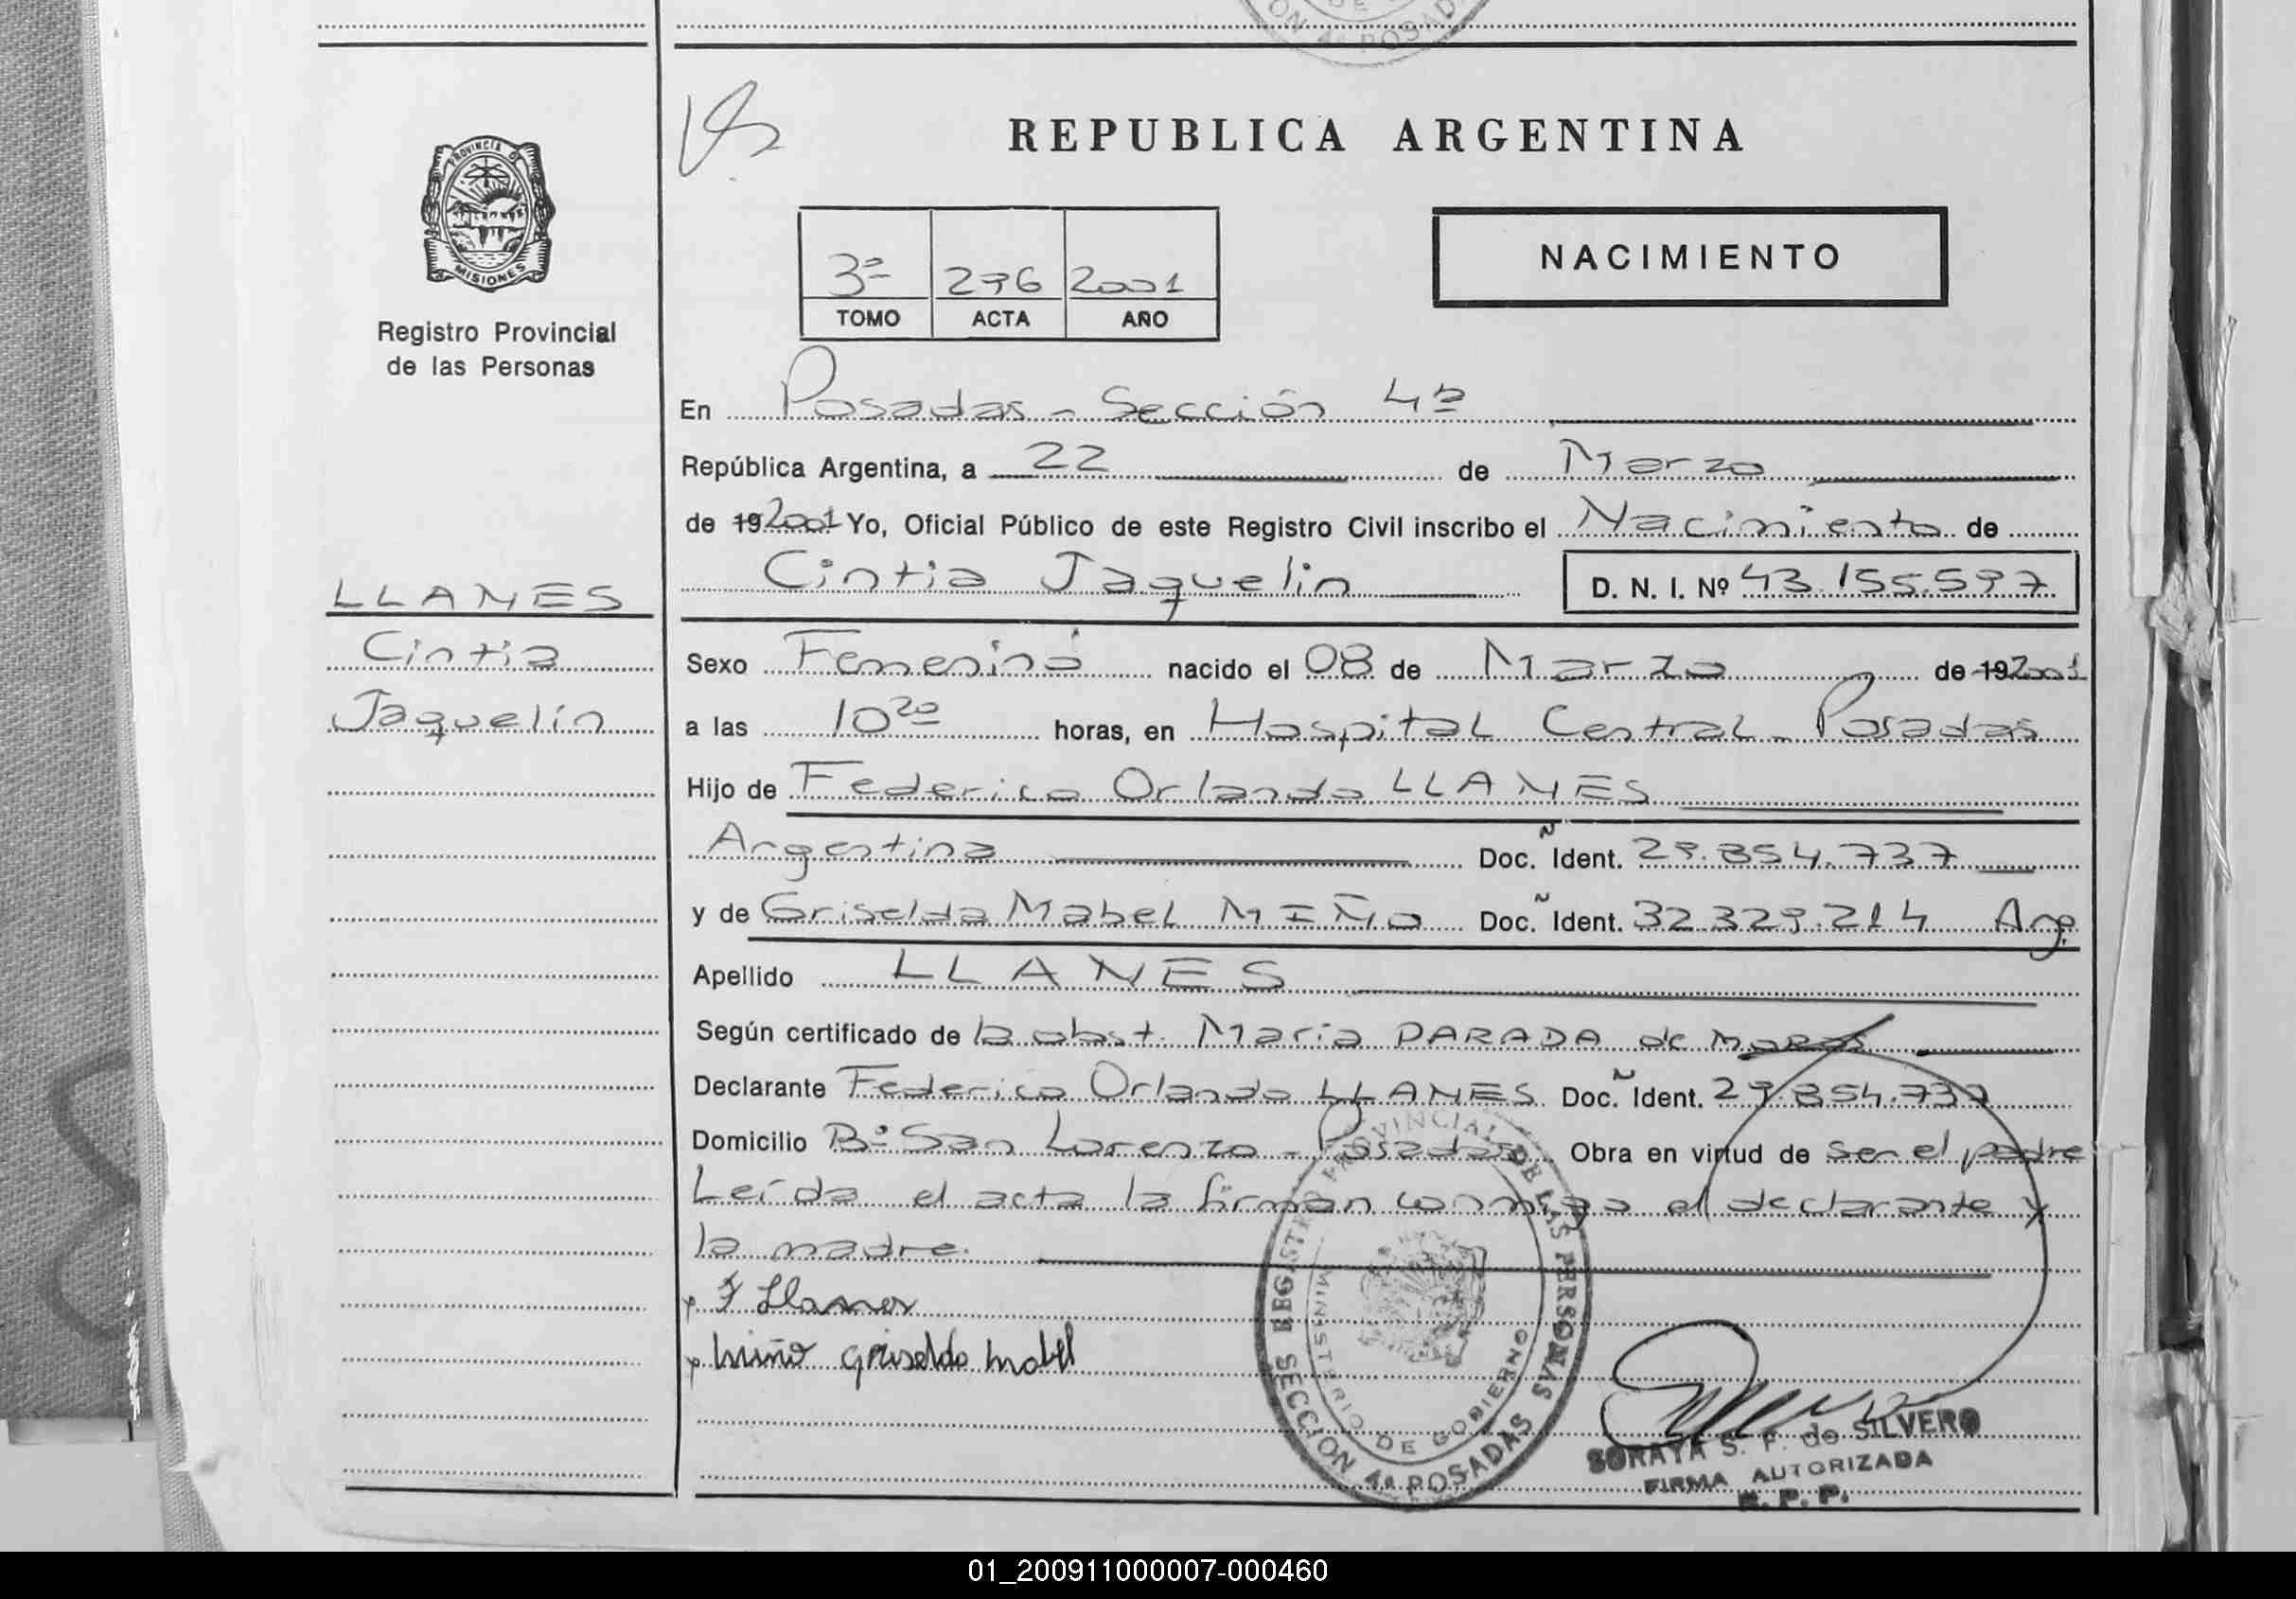 REPUBLICA ARGENTINA
PROVINCIA D
MISIONES
Registro Provincial
de las Personas
3ª 276 2001
TOMO ACTA AÑO
NACIMIENTO
En Posadas - Sección 4ª
República Argentina, a 22 de Marzo
de 19 2001 Yo, Oficial Público de este Registro Civil inscribo el Nacimiento de
Cintia Jaquelin D. N. I. Nº 43.155.597
LLANES
Cintia
Jaquelin
Sexo Femenino nacido el 08 de Marzo de 19 2001
a las 10 20 horas, en Hospital Central - Posadas
Hijo de Federico Orlando LLANES
Argentina Doc. Ident. 29.854.737
y de Griselda Mabel MIÑO Doc. Ident. 32.329.214 Arg
Apellido LLANES
Según certificado de la obst. Maria PARADA de
Declarante Federico Orlando LLANES Doc. Ident. 29.854.737
Domicilio Bº San Lorenzo - Posadas Obra en virtud de ser el padre
Leída el acta la firman conmigo el declarante y
la madre.
x F Llanes
x Miño Griselda Mabel
REGISTRO PROVINCIAL DE LAS PERSONAS
MINISTERIO DE GOBIERNO
SECCION 4ª POSADAS
SORAYA S. F. de SILVERO
FIRMA AUTORIZADA
R. P. P.
01_200911000007-000460